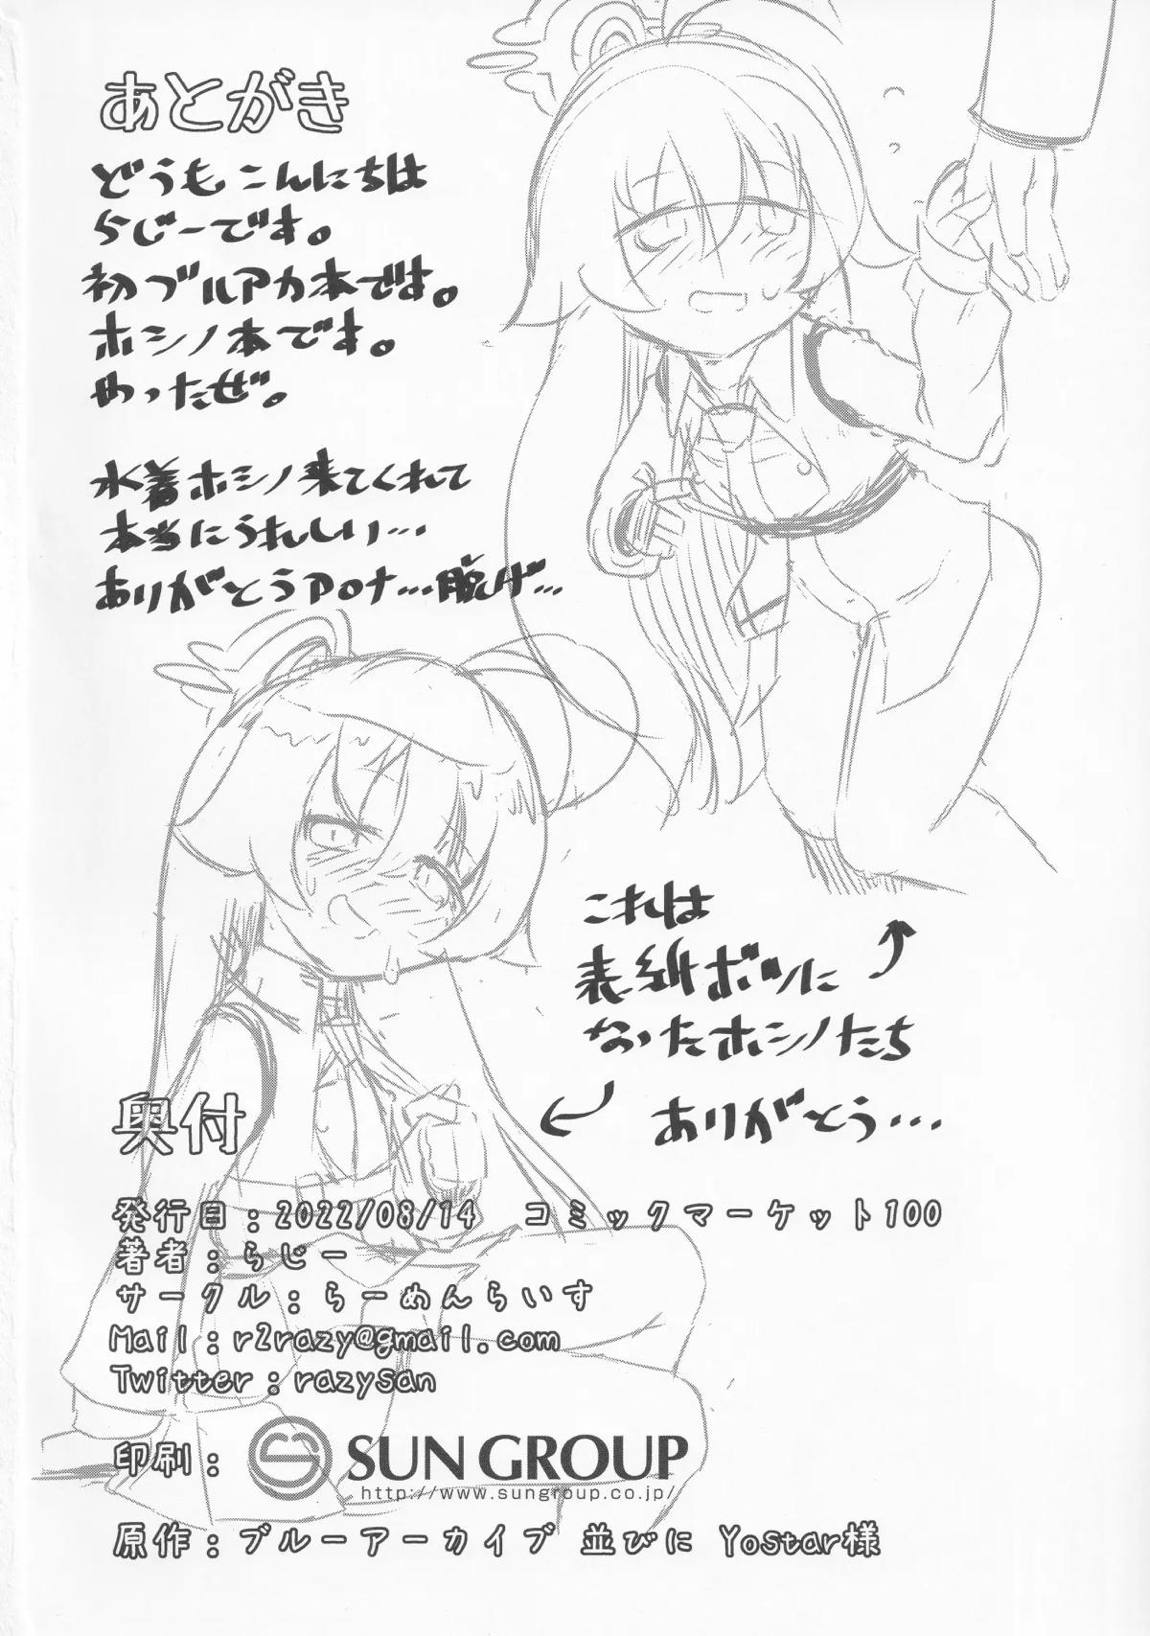 あとがき
どうもこんにちは
らじーです。
初ブルアカ本です。
ホシノ本です。
やったぜ。
水着ホシノ来てくれて
本当にうれしい…
ありがとうアロナ…脱げ…
これは
表紙ボツに
なったホシノたち
ありがとう…
奥付
発行日：2022/08/14 コミックマーケット100
著者：らじー
サークル：らーめんらいす
Mail：r2razy@gmail.com
Twitter：razysan
印刷： SUN GROUP
http://www.sungroup.co.jp/
原作：ブルーアーカイブ 並びに Yostar様